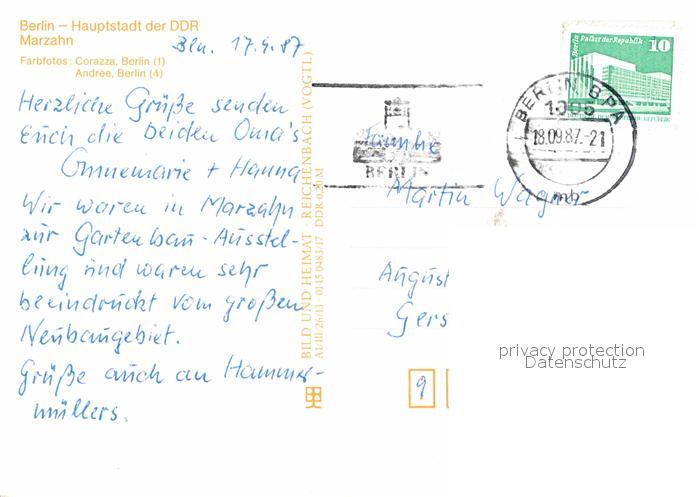 Berlin – Hauptstadt der DDR
Marzahn
Farbfotos: Corazza, Berlin (1)
Andree, Berlin (4)
Bln. 17.9.87
Herzliche Grüße senden
Euch die beiden Oma's
Annemarie + Hanna
Wir waren in Marzahn
zur Gartenbau-Ausstel-
lung und waren sehr
beeindruckt vom großen
Neubaugebiet.
Grüße auch an Hammer-
müllers.
BILD UND HEIMAT · REICHENBACH (VOGTL)
A1/III/26/13 · 01 15 0483/17 DDR 0,20 M
BERLIN
Familie
Martin Wagner
August
Gers
9
Berlin Palast der Republik
10
BERLIN BPA
1085
18.09.87.-21
mb
privacy protection
Datenschutz